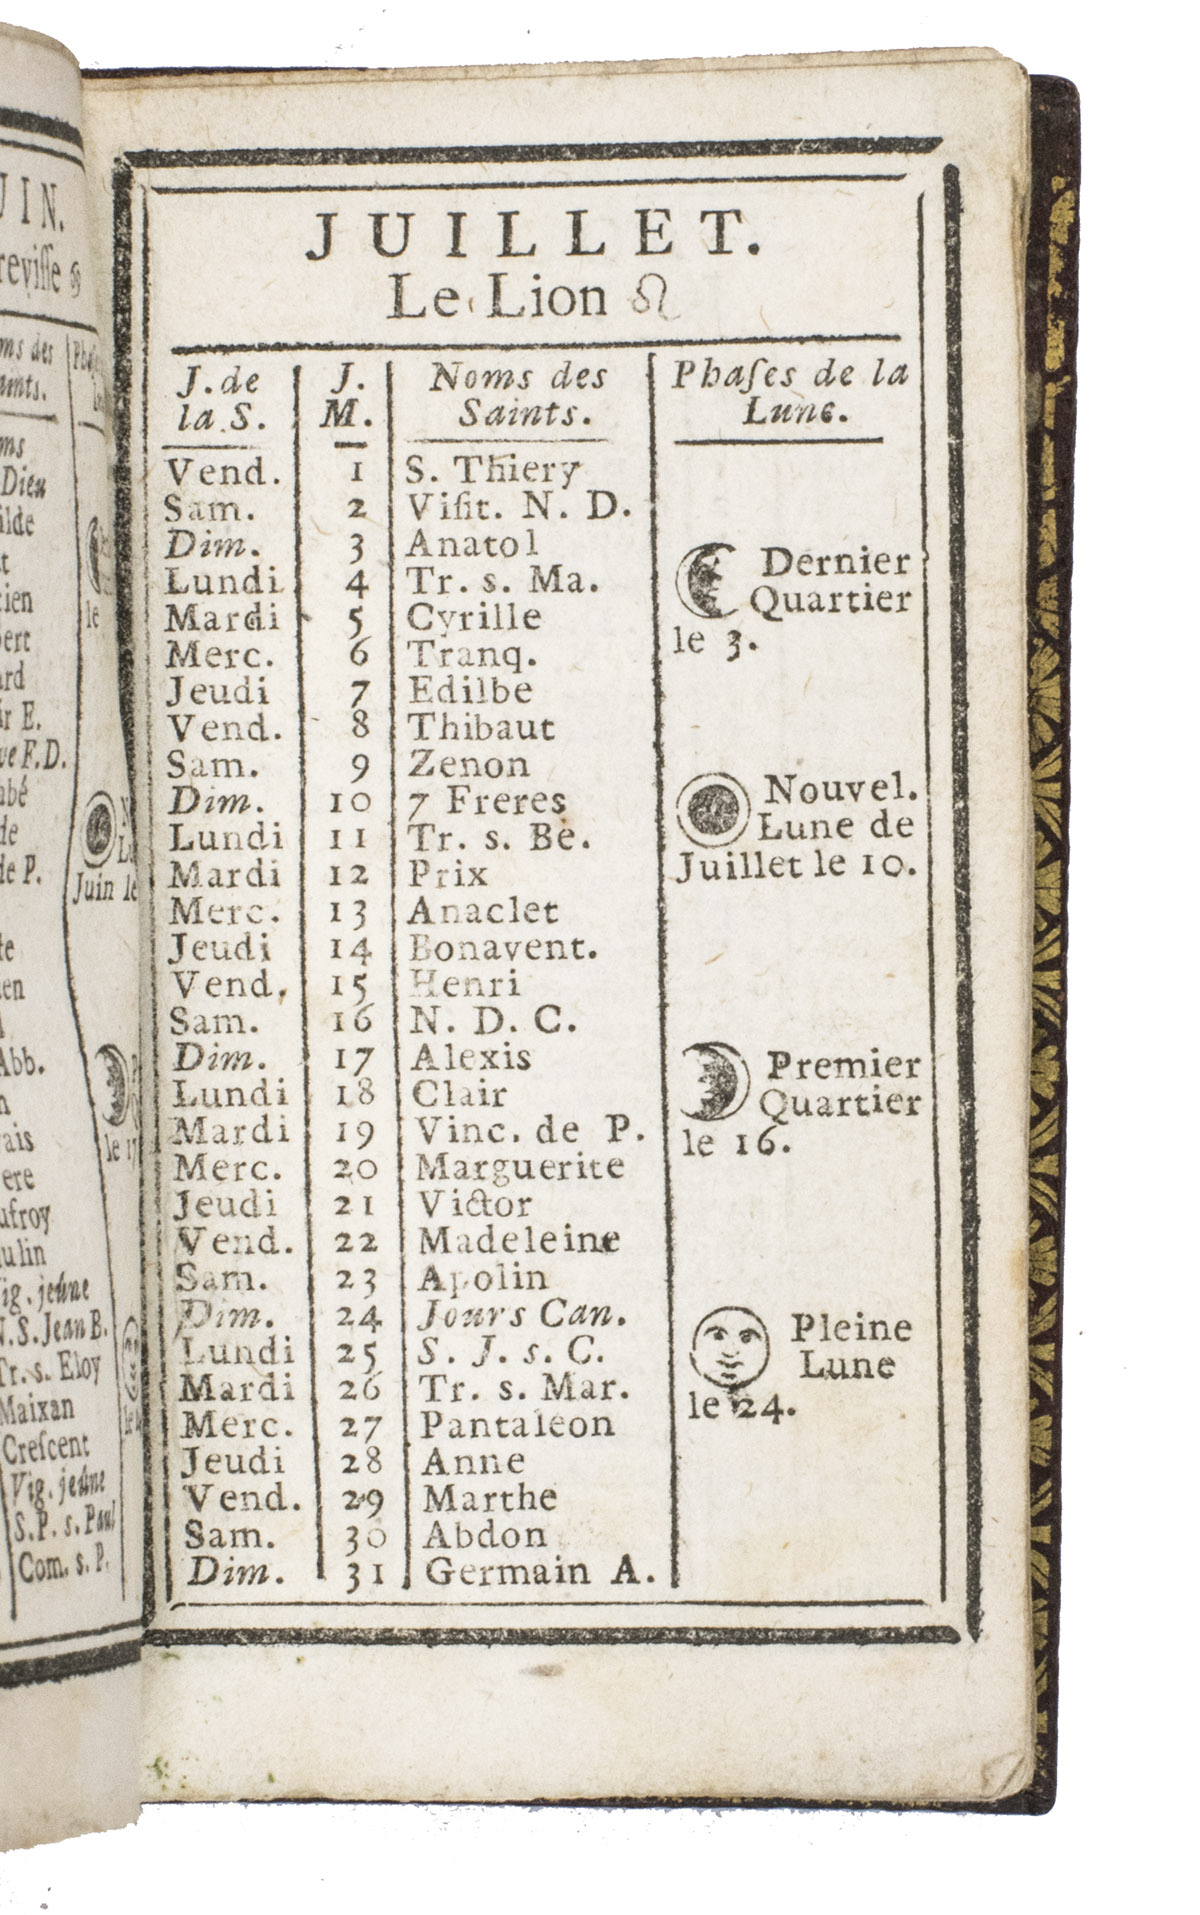 UIN.
revisse ♋
ms des
aints.
ms
Dieu
ilde
t
cien
bert
ard
ir E.
ve F.D.
abé
de
de P.
te
en
Abb.
n
vais
ere
ufroy
ulin
ig. jeûne
N.S.Jean B.
Tr. s. Eloy
Maixan
Crescent
Vig. jeûne
S.P. s. Paul
Com. s. P.
le
Juin le
le 17
JUILLET.
Le Lion ♌
J. de la S. J. M. Noms des Saints. Phaſes de la Lune.
Vend. 1 S. Thiery
Sam. 2 Viſit. N. D.
Dim. 3 Anatol
Lundi 4 Tr. s. Ma.
Mardi 5 Cyrille
Merc. 6 Tranq.
Jeudi 7 Edilbe
Vend. 8 Thibaut
Sam. 9 Zenon
Dim. 10 7 Freres
Lundi 11 Tr. s. Be.
Mardi 12 Prix
Merc. 13 Anaclet
Jeudi 14 Bonavent.
Vend. 15 Henri
Sam. 16 N. D. C.
Dim. 17 Alexis
Lundi 18 Clair
Mardi 19 Vinc. de P.
Merc. 20 Marguerite
Jeudi 21 Victor
Vend. 22 Madeleine
Sam. 23 Apolin
Dim. 24 Jours Can.
Lundi 25 S. J. s. C.
Mardi 26 Tr. s. Mar.
Merc. 27 Pantaleon
Jeudi 28 Anne
Vend. 29 Marthe
Sam. 30 Abdon
Dim. 31 Germain A.
Dernier
Quartier
le 3.
Nouvel.
Lune de
Juillet le 10.
Premier
Quartier
le 16.
Pleine
Lune
le 24.